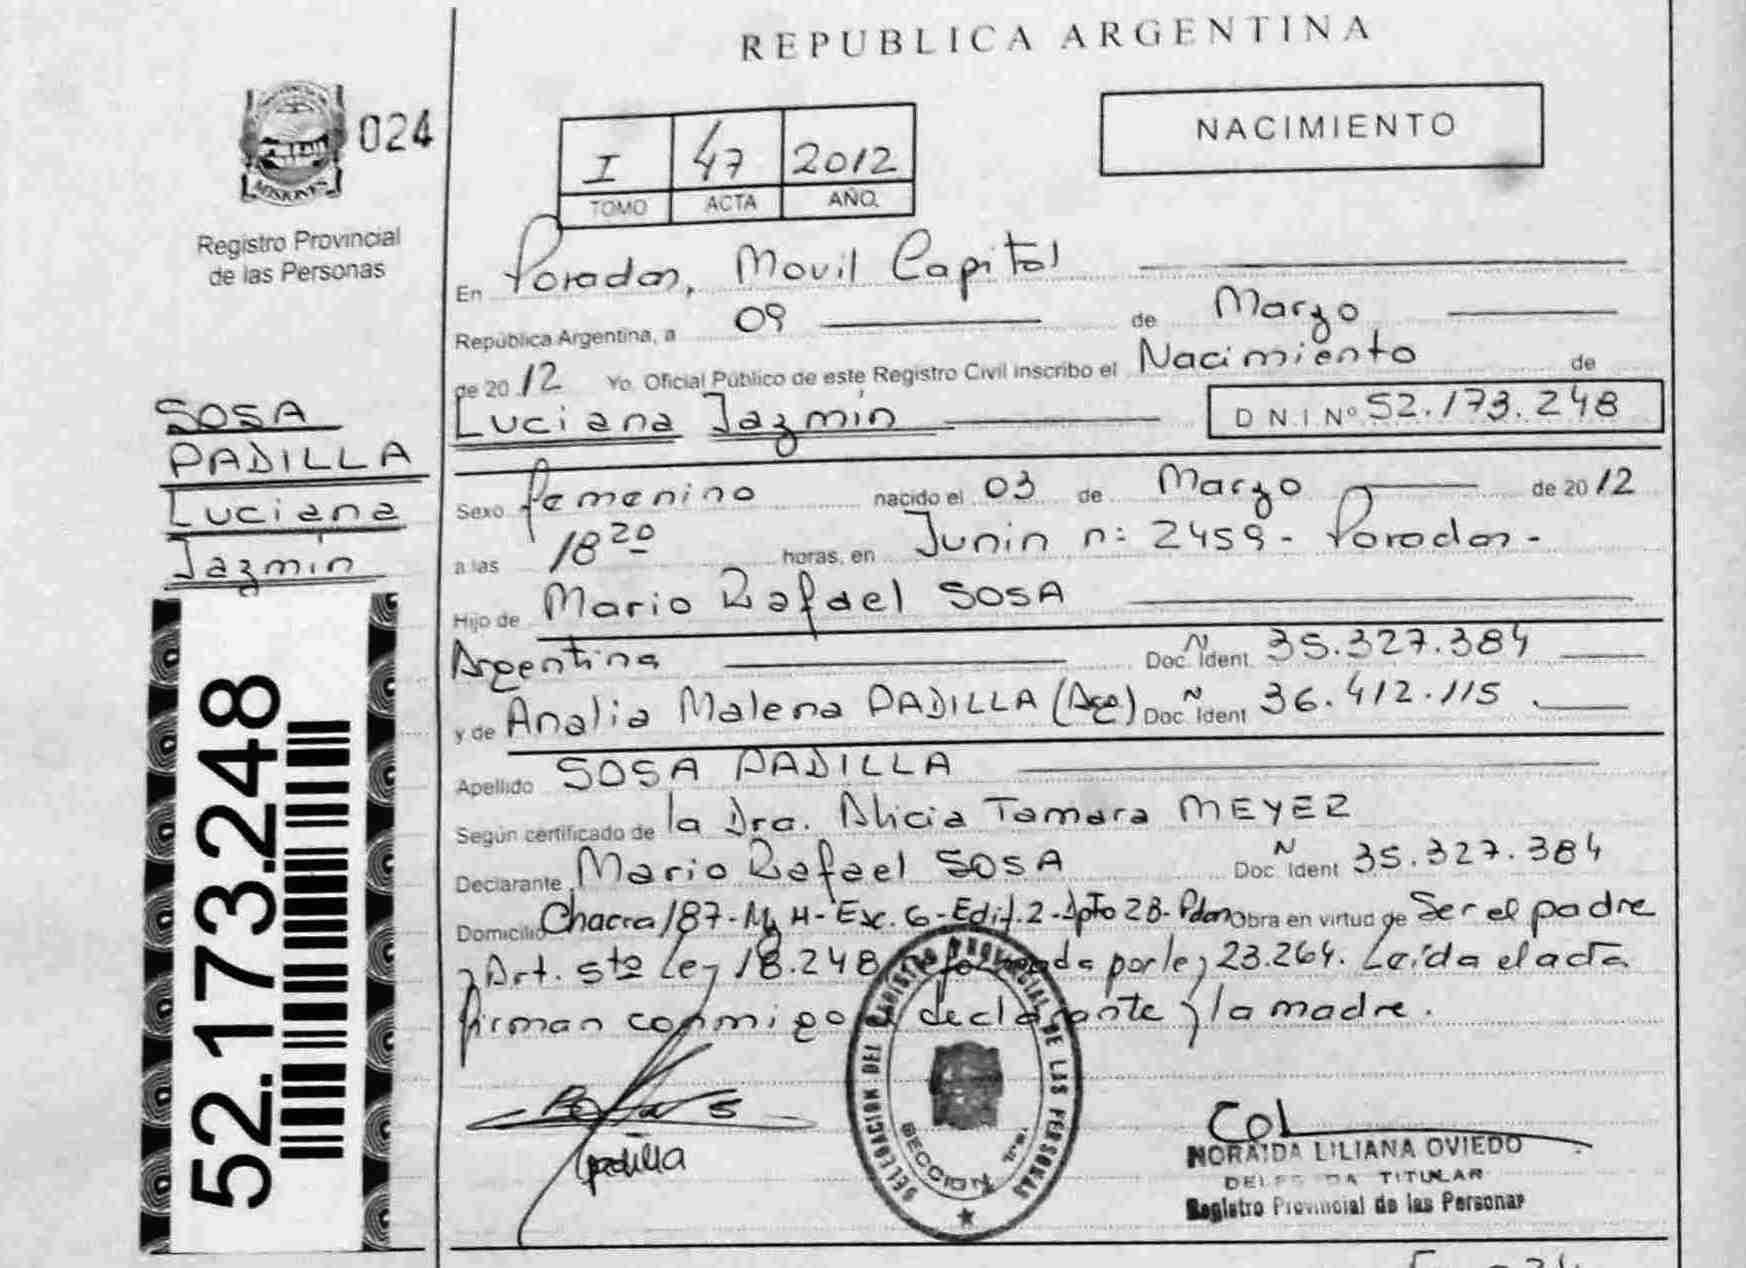 REPUBLICA ARGENTINA
MISIONES
024
Registro Provincial
de las Personas
I 47 2012
TOMO ACTA AÑO
NACIMIENTO
En Posadas, Movil Capital
República Argentina, a 09 de Marzo
de 2012 Yo Oficial Público de este Registro Civil inscribo el Nacimiento de
Luciana Jazmín D.N.I. Nº 52.173.248
SOSA
PADILLA
Luciana
Jazmín
Sexo femenino nacido el 03 de Marzo de 2012
a las 18 20 horas, en Junin n: 2459 - Posadas -
Hijo de Mario Rafael SOSA
Argentina Doc. Ident. N 35.327.384
y de Analia Malena PADILLA (Arg) Doc. Ident N 36.412.115
Apellido SOSA PADILLA
Según certificado de la Dra. Alicia Tamara MEYER
Declarante Mario Rafael SOSA Doc. Ident N 35.327.384
Domicilio Chacra 187 - Mz H - Esc. 6 - Edif. 2 - Dpto 2B - Pdas Obra en virtud de Ser el padre
y Art. 5to Ley 18.248 reformada por ley 23.264. Leída el acta
firman conmigo el declarante y la madre.
52.173.248
Padilla
DELEGACION DEL REGISTRO PROVINCIAL DE LAS PERSONAS
SECCION
NORAIDA LILIANA OVIEDO
DELEGADA TITULAR
Registro Provincial de las Personas